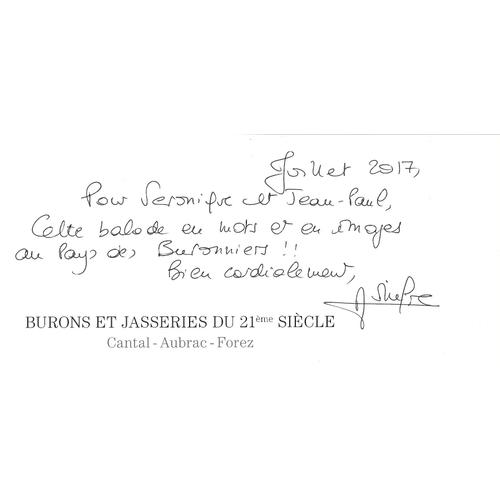 Juillet 2017,
Pour Veronique et Jean-Paul,
Cette balade en mots et en images
au Pays des Buronniers !!
Bien cordialement,
BURONS ET JASSERIES DU 21ème SIÈCLE
Cantal - Aubrac - Forez